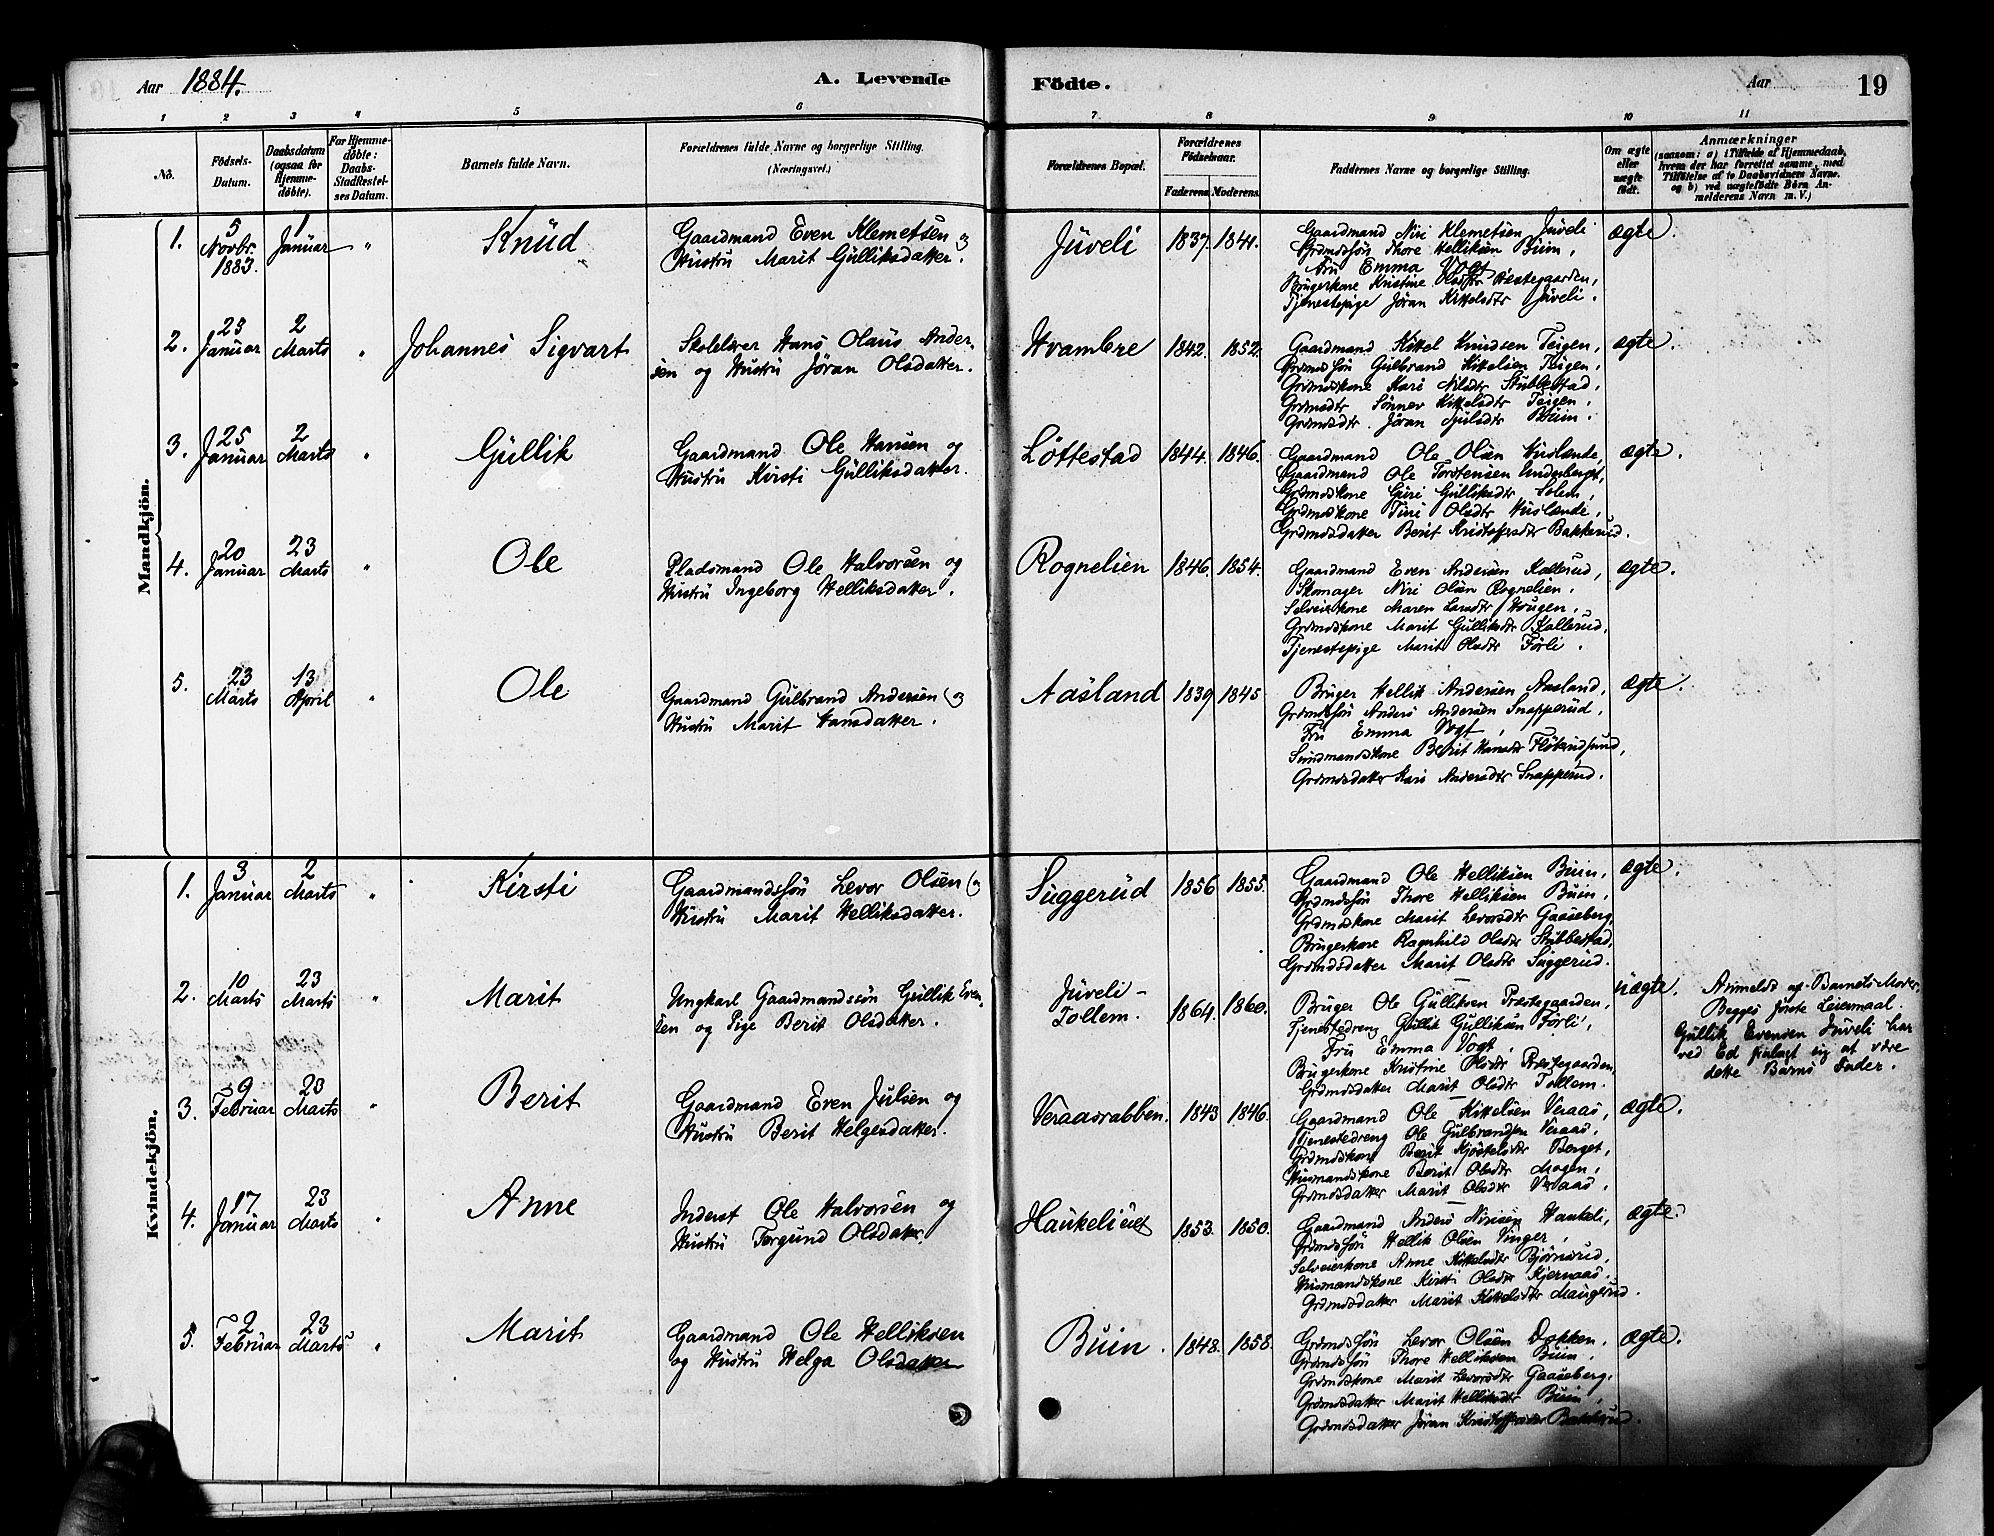 Aar 1884. A. Levende Födte. Aar 19
1 2 3 4 5 6 7 8 9 10 11
No. Födsels-Datum. Daabsdatum (ogsaa for Hjemmedöbte). For Hjemmedöbte: Daabs-Stadfæstelses Datum. Barnets fulde Navn. Forældrenes fulde Navne og borgerlige Stilling. (Næringsvei.) Forældrenes Bopæl. Forældrenes Födselsaar. Faderens. Moderens. Faddernes Navne og borgerlige Stilling. Om ægte eller uægte födt. Anmærkninger (saasom: a) i Tilfælde af Hjemmedaab, hvem der har forrettet samme, med Tilföielse af to Daabsvidners Navne, og b) ved uægtefödte Börn Anmelderens Navn m. V.)
Mandkjön.
1. 5 Novbr. 1883. 1 Januar " Knud Gaardmand Even Klemetsen og
Hustru Marit Gulliksdatter. Juveli 1837. 1841. ægte.
Gaardmand Niri Klemetsen Juveli
Grdmdssøn Thore Helliksen Buin,
Fru Emma Vogt
Brugerkone Kristine Olsdtr Præstegaarden,
Tjenestepige Jöran Kittelsdtr Juveli.
2. 23 Januar 2 Marts " Johannes Sigvart Skolelærer Hans Olaus Ander-
sen og Hustru Jöran Olsdatter. Hvambre 1842. 1852. ægte.
Gaardmand Kittel Knudsen Teigen,
Grdmdssøn Gulbrand Kittelsen Teigen,
Grdmdskone Kari Nilsdtr Stubbestad,
Grdmdsdtr Sönnev Kittelsdtr Teigen,
Grdmdsdtr. Jöran Julsdtr Buin.
3. 25 Januar 2 Marts " Gullik Gaardmand Ole Hansen og
Hustru Kirsti Gulliksdatter. Löttestad 1844. 1846. ægte.
Gaardmand Ole Olsen
Gaardmand Ole Torstensen Underberget,
Grdmdskone Guri Gulliksdtr Solem,
Grdmdskone Turi Olsdtr
Grdmdsdatter Berit Kristoffersdtr Bakkerud.
4. 20 Januar 23 Marts " Ole Pladsmand Ole Halvorsen og
Hustru Ingeborg Helliksdatter. Rognelien 1846. 1854. ægte.
Gaardmand Even Andersen Kallerud,
Skomager Niri Olsen Rognelien.
Selveierkone Maren Larsdtr Haugen,
Grdmdskone Marit Gulliksdtr Kallerud,
Tjenestepige Marit Olsdtr Förli.
5. 23 Marts 13 April " Ole Gaardmand Gulbrand Andersen og
Hustru Marit Hansdatter. Aasland 1839 1845 ægte.
Bruger Hellik Andersen Aasland,
Grdmdssøn Anders Andersen Snapperud,
Fru Emma Vogt,
Sundmandskone Berit Hansdtr
Grdmdsdatter Kari Andersdtr Snapperud.
Kvindekjön.
1. 3 Januar 2 Marts " Kirsti Gaardmandssøn Levor Olsen og
Hustru Marit Helliksdatter. Suggerud 1856 1855. ægte.
Gaardmand Ole Helliksen Buin,
Grdmdssøn Thore Helliksen Buin,
Grdmdskone Marit Levorsdtr Gaaseberg,
Brugerkone Ragnhild Olsdtr Stubbestad,
Grdmdsdatter Marit Olsdtr Suggerud.
2. 10 Marts 23 Marts " Marit Ungkarl Gaardmandssøn Gullik Even-
sen og Pige Berit Olsdatter. Juveli - Tollem. 1864. 1860. uægte.
Bruger Ole Gulliksen Præstegaarden,
Tjenestedreng Gullik Gulliksen Förli,
Fru Emma Vogt,
Brugerkone Kristine Olsdtr Præstegaarden,
Grdmdsdatter Marit Olsdtr Tollem.
Anmeldt af Barnets Moder.
Begges förste Leiermaal.
Gullik Evensen Juveli har
ved Ed fralagt sig at være
dette Barns Fader.
3. 9 Februar 23 Marts " Berit Gaardmand Even Julsen og
Hustru Berit Helgesdatter. Veraasrabben. 1843 1846. ægte.
Gaardmand Ole Kittelsen Veraas,
Tjenestedreng Ole Gulbrandsen Veraas,
Grdmdskone Berit Kjöstelsdtr Berget,
Husmandskone Berit Olsdtr Mogen,
Grdmdsdatter Marit Olsdtr Veraas,
4. 17 Januar 23 Marts " Anne Inderst Ole Halvorsen og
Hustru Torgund Olsdatter. Haukelieiet 1853. 1850. ægte.
Gaardmand Anders Nirisen Haukeli,
Grdmdssøn Hellik Olsen Vinger,
Selveierkone Anne Kittelsdtr Björnerud,
Husmandskone Kirsti Olsdtr Kjernaas,
Grdmdsdatter Marit Kittelsdtr Maugerud.
5. 9 Februar 23 Marts " Marit Gaardmand Ole Helliksen
og Hustru Helga Olsdatter Buin. 1848. 1858. ægte.
Grdmdssøn Levor Olsen Dokken,
Grdmdssøn Thore Helliksen Buin,
Grdmdskone Marit Levorsdtr Gaaseberg,
Grdmdsdatter Marit Helliksdtr Buin,
Grdmdsdatter Jöran Kristoffersdtr Bakkerud.